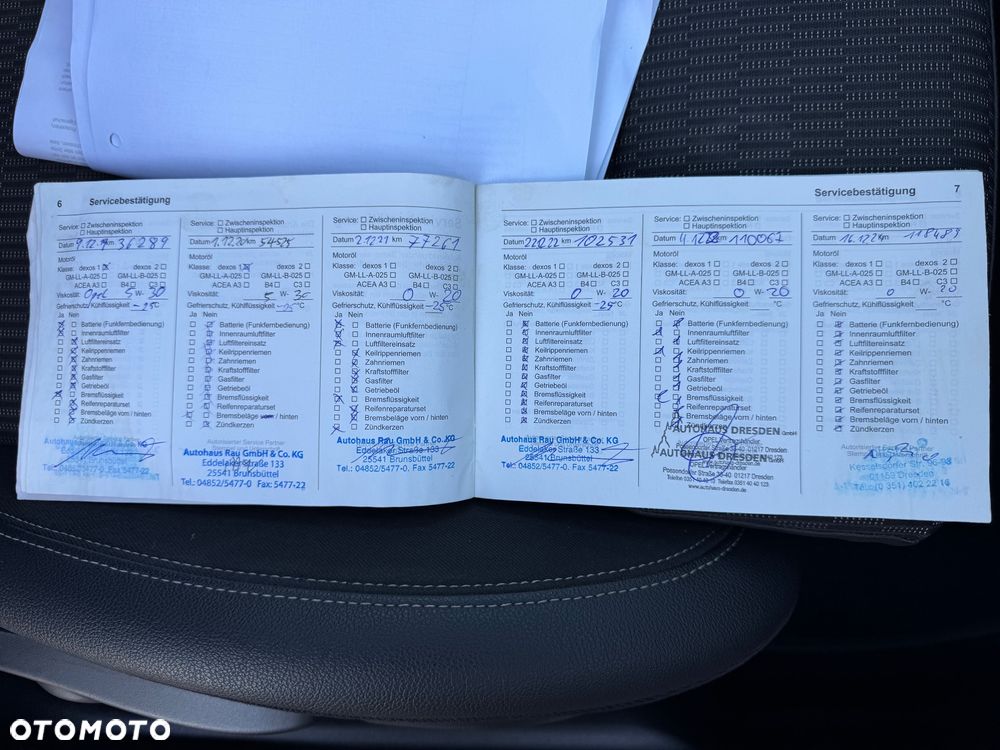 6 Servicebestätigung
Service: Zwischeninspektion
Hauptinspektion
Datum 9.12.19 km 36289
Motoröl
Klasse: dexos 1 dexos 2
GM-LL-A-025 GM-LL-B-025
ACEA A3 B4 C3
Viskosität: Opel 5 W- 30
Gefrierschutz, Kühlflüssigkeit -25 °C
Ja Nein
Batterie (Funkfernbedienung)
Innenraumluftfilter
Luftfiltereinsatz
Keilrippenriemen
Zahnriemen
Kraftstofffilter
Gasfilter
Getriebeöl
Bremsflüssigkeit
Reifenreparaturset
Bremsbeläge vorn / hinten
Zündkerzen
Autohaus Rau GmbH & Co. KG
Tel.: 04852/5477-0 Fax 5477-22
Service: Zwischeninspektion
Hauptinspektion
Datum 1.12.20 km 54525
Motoröl
Klasse: dexos 1 dexos 2
GM-LL-A-025 GM-LL-B-025
ACEA A3 B4 C3
Viskosität: 5 W- 30
Gefrierschutz, Kühlflüssigkeit -25 °C
Ja Nein
Batterie (Funkfernbedienung)
Innenraumluftfilter
Luftfiltereinsatz
Keilrippenriemen
Zahnriemen
Kraftstofffilter
Gasfilter
Getriebeöl
Bremsflüssigkeit
Reifenreparaturset
Bremsbeläge vorn / hinten
Zündkerzen
Autorisierter Service Partner
Autohaus Rau GmbH & Co. KG
Eddelaker Straße 133
25541 Brunsbüttel
Tel.: 04852/5477-0 Fax: 5477-22
Service: Zwischeninspektion
Hauptinspektion
Datum 2.12.21 km 77261
Motoröl
Klasse: dexos 1 dexos 2
GM-LL-A-025 GM-LL-B-025
ACEA A3 B4 C3
Viskosität: 0 W- 20
Gefrierschutz, Kühlflüssigkeit -25 °C
Ja Nein
Batterie (Funkfernbedienung)
Innenraumluftfilter
Luftfiltereinsatz
Keilrippenriemen
Zahnriemen
Kraftstofffilter
Gasfilter
Getriebeöl
Bremsflüssigkeit
Reifenreparaturset
Bremsbeläge vorn / hinten
Zündkerzen
Autohaus Rau GmbH & Co. KG
Eddelaker Straße 133
25541 Brunsbüttel
Tel.: 04852/5477-0 Fax 5477-22
Servicebestätigung 7
Service: Zwischeninspektion
Hauptinspektion
Datum km 102531
Motoröl
Klasse: dexos 1 dexos 2
GM-LL-A-025 GM-LL-B-025
ACEA A3 B4 C3
Viskosität: 0 W- 20
Gefrierschutz, Kühlflüssigkeit -25 °C
Ja Nein
Batterie (Funkfernbedienung)
Innenraumluftfilter
Luftfiltereinsatz
Keilrippenriemen
Zahnriemen
Kraftstofffilter
Gasfilter
Getriebeöl
Bremsflüssigkeit
Reifenreparaturset
Bremsbeläge vorn / hinten
Zündkerzen
Autohaus Rau GmbH & Co. KG
Eddelaker Straße 133
25541 Brunsbüttel
Tel.: 04852/5477-0 Fax 5477-22
Service: Zwischeninspektion
Hauptinspektion
Datum km 110067
Motoröl
Klasse: dexos 1 dexos 2
GM-LL-A-025 GM-LL-B-025
ACEA A3 B4 C3
Viskosität: 0 W- 20
Gefrierschutz, Kühlflüssigkeit °C
Ja Nein
Batterie (Funkfernbedienung)
Innenraumluftfilter
Luftfiltereinsatz
Keilrippenriemen
Zahnriemen
Kraftstofffilter
Gasfilter
Getriebeöl
Bremsflüssigkeit
Reifenreparaturset
Bremsbeläge vorn / hinten
AUTOHAUS DRESDEN GmbH
OPEL Vertragshändler
AUTOHAUS DRESDEN
Possendorfer Straße 38-40 01217 Dresden
Telefon 0351 40 40 10 Telefax 0351 40 40 123
www.autohaus-dresden.de
Service: Zwischeninspektion
Hauptinspektion
Datum km 118489
Motoröl
Klasse: dexos 1 dexos 2
GM-LL-A-025 GM-LL-B-025
ACEA A3 B4 C3
Viskosität: 0 W- 20
Gefrierschutz, Kühlflüssigkeit °C
Ja Nein
Batterie (Funkfernbedienung)
Innenraumluftfilter
Luftfiltereinsatz
Keilrippenriemen
Zahnriemen
Kraftstofffilter
Gasfilter
Getriebeöl
Bremsflüssigkeit
Reifenreparaturset
Bremsbeläge vorn / hinten
Zündkerzen
Kesselsdorfer Str. 96-98
01159 Dresden
Tel. (0 351) 402 22 16
OTOMOTO